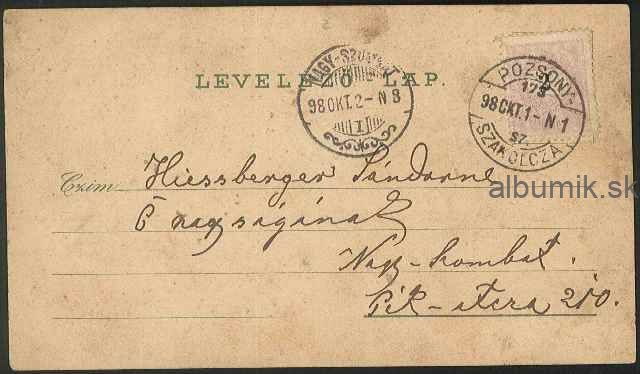 LEVELEZŐ LAP.
NAGY-SZOMBAT
98 OKT. 2 - N 8
I
POZSONY-
173
98 OKT. 1 - N 1
SZ.
SZAKOLCZA
Czim
Hiessberger Sándorne
Ő nagyságának
albumik.sk
Nagy-Szombat.
210.